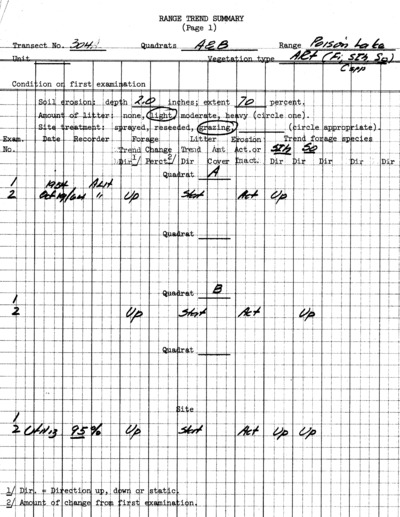 RANGE TREND SUMMARY
(Page 1)
Transect No. 304 Quadrats A&B Range Poison Lake
Unit Vegetation type
Condition on first examination
Soil erosion: depth 2.0 inches; extent 70 percent.
Amount of litter: none, light, moderate, heavy (circle one).
Site treatment: sprayed, reseeded, grazing, (circle appropriate).
Exam. Date Recorder Forage Litter Erosion Trend forage species
No. Trend Change Trend Amt Act.or Sth So
Dir 1/ Perct. 2/ Dir Cover Inact. Dir Dir Dir Dir Dir
Quadrat A
1
2 " Up Act Up
Quadrat
Quadrat B
1
2 Up Act Up
Quadrat
Site
1
2 95% Up Act Up Up
1/ Dir. = Direction up, down or static.
2/ Amount of change from first examination.